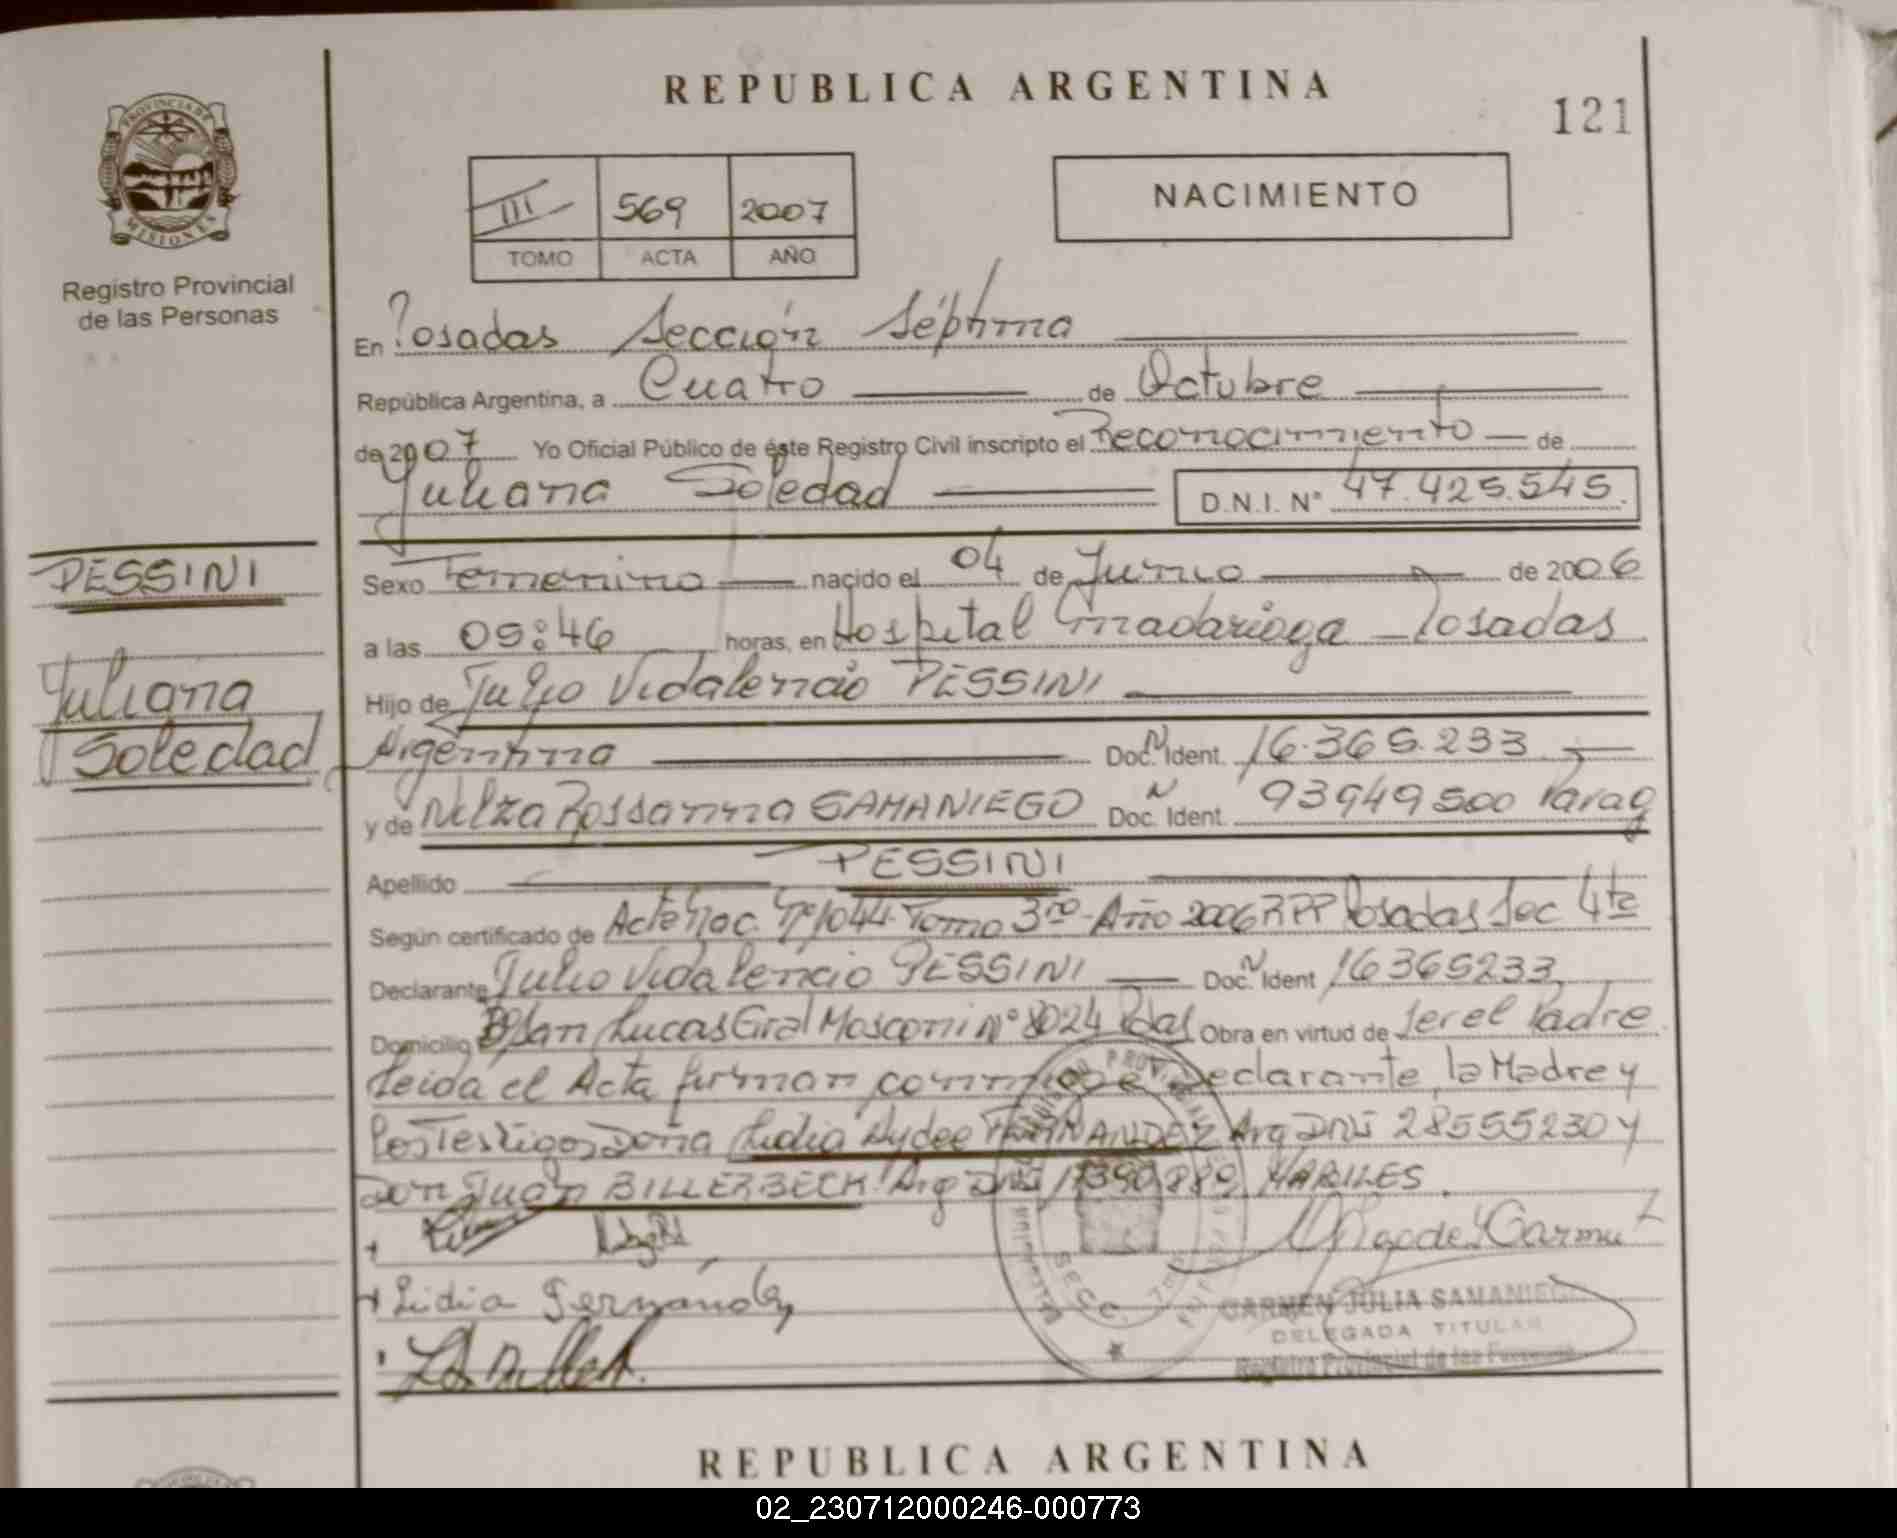 REPUBLICA ARGENTINA
121
PROVINCIA DE
MISIONES
Registro Provincial
de las Personas
III 569 2007
TOMO ACTA AÑO
NACIMIENTO
En Posadas Sección Séptima
República Argentina, a Cuatro de Octubre
de 2007 Yo Oficial Público de éste Registro Civil inscripto el Reconocimiento de
Juliana Soledad D.N.I. N° 47.425.545.
PESSINI
Juliana
Soledad
Sexo Femenino nacido el 04 de Junio de 2006
a las 05:46 horas, en Hospital Madariaga Posadas
Hijo de Julio Vidalencio PESSINI
Argentina Doc. N Ident. 16.365.233
y de Nilza Rossanna SAMANIEGO Doc. N Ident. 93949500 Parag
Apellido PESSINI
Según certificado de Acta Nac. N° 1044 Tomo 3ro Año 2006 RPP Posadas Sec 4ta
Declarante Julio Vidalencio PESSINI Doc. N Ident 16365233
Domicilio B° San Lucas Gral Mosconi N° 8024 Pdas Obra en virtud de ser el Padre
Leida el Acta firman conmigo el Declarante, la Madre y
los Testigos Doña Lidia Aydee FERNANDEZ Arg DNI 28555230 y
Don Juan BILLERBECK Arg DNI 17390889 HABILES.
Lidia Fernández
CARMEN JULIA SAMANIEGO
DELEGADA TITULAR
Registro Provincial de las Personas
REPUBLICA ARGENTINA
02_230712000246-000773